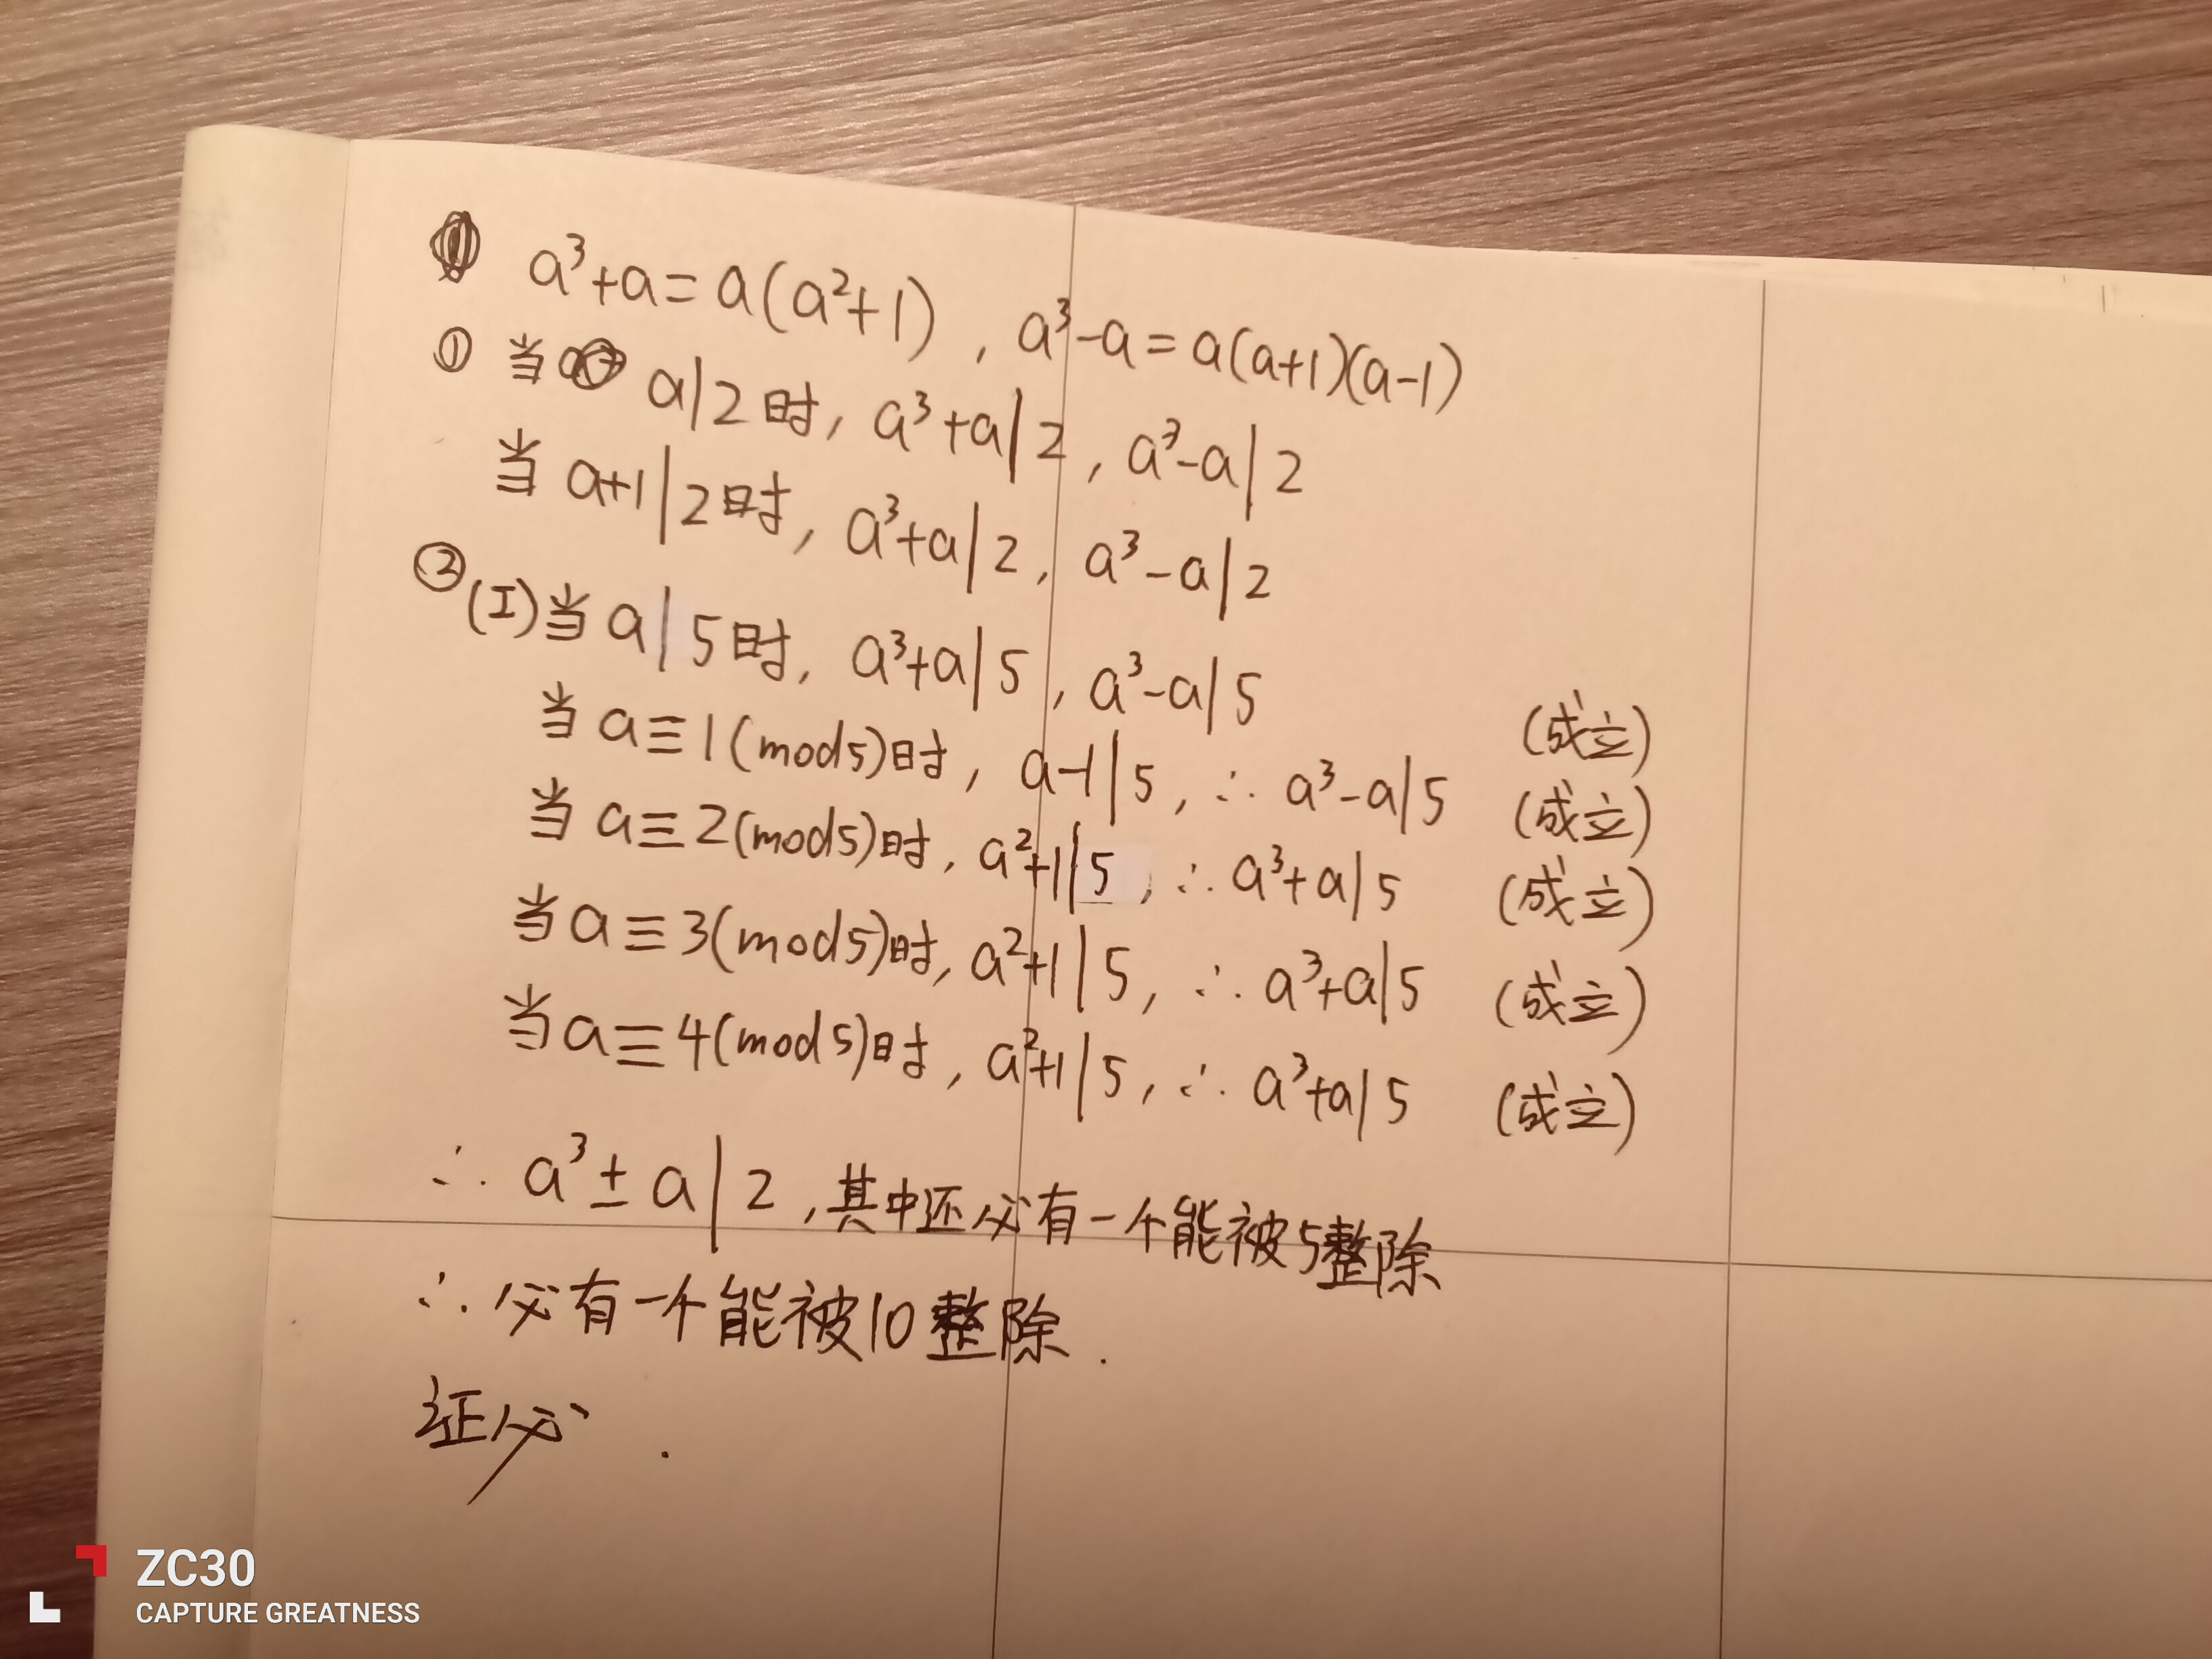 a³+a=a(a²+1), a³-a=a(a+1)(a-1)
① 当 a|2时, a³+a|2, a³-a|2
当 a+1|2时, a³+a|2, a³-a|2
② (I)当 a|5时, a³+a|5, a³-a|5 (成立)
当 a≡1(mod5)时, a-1|5, ∴ a³-a|5 (成立)
当 a≡2(mod5)时, a²+1|5, ∴ a³+a|5 (成立)
当 a≡3(mod5)时, a²+1|5, ∴ a³+a|5 (成立)
当 a≡4(mod5)时, a²+1|5, ∴ a³+a|5 (成立)
∴ a³±a|2,其中还必有一个能被5整除
∴ 必有一个能被10整除.
证必.
ZC30
CAPTURE GREATNESS